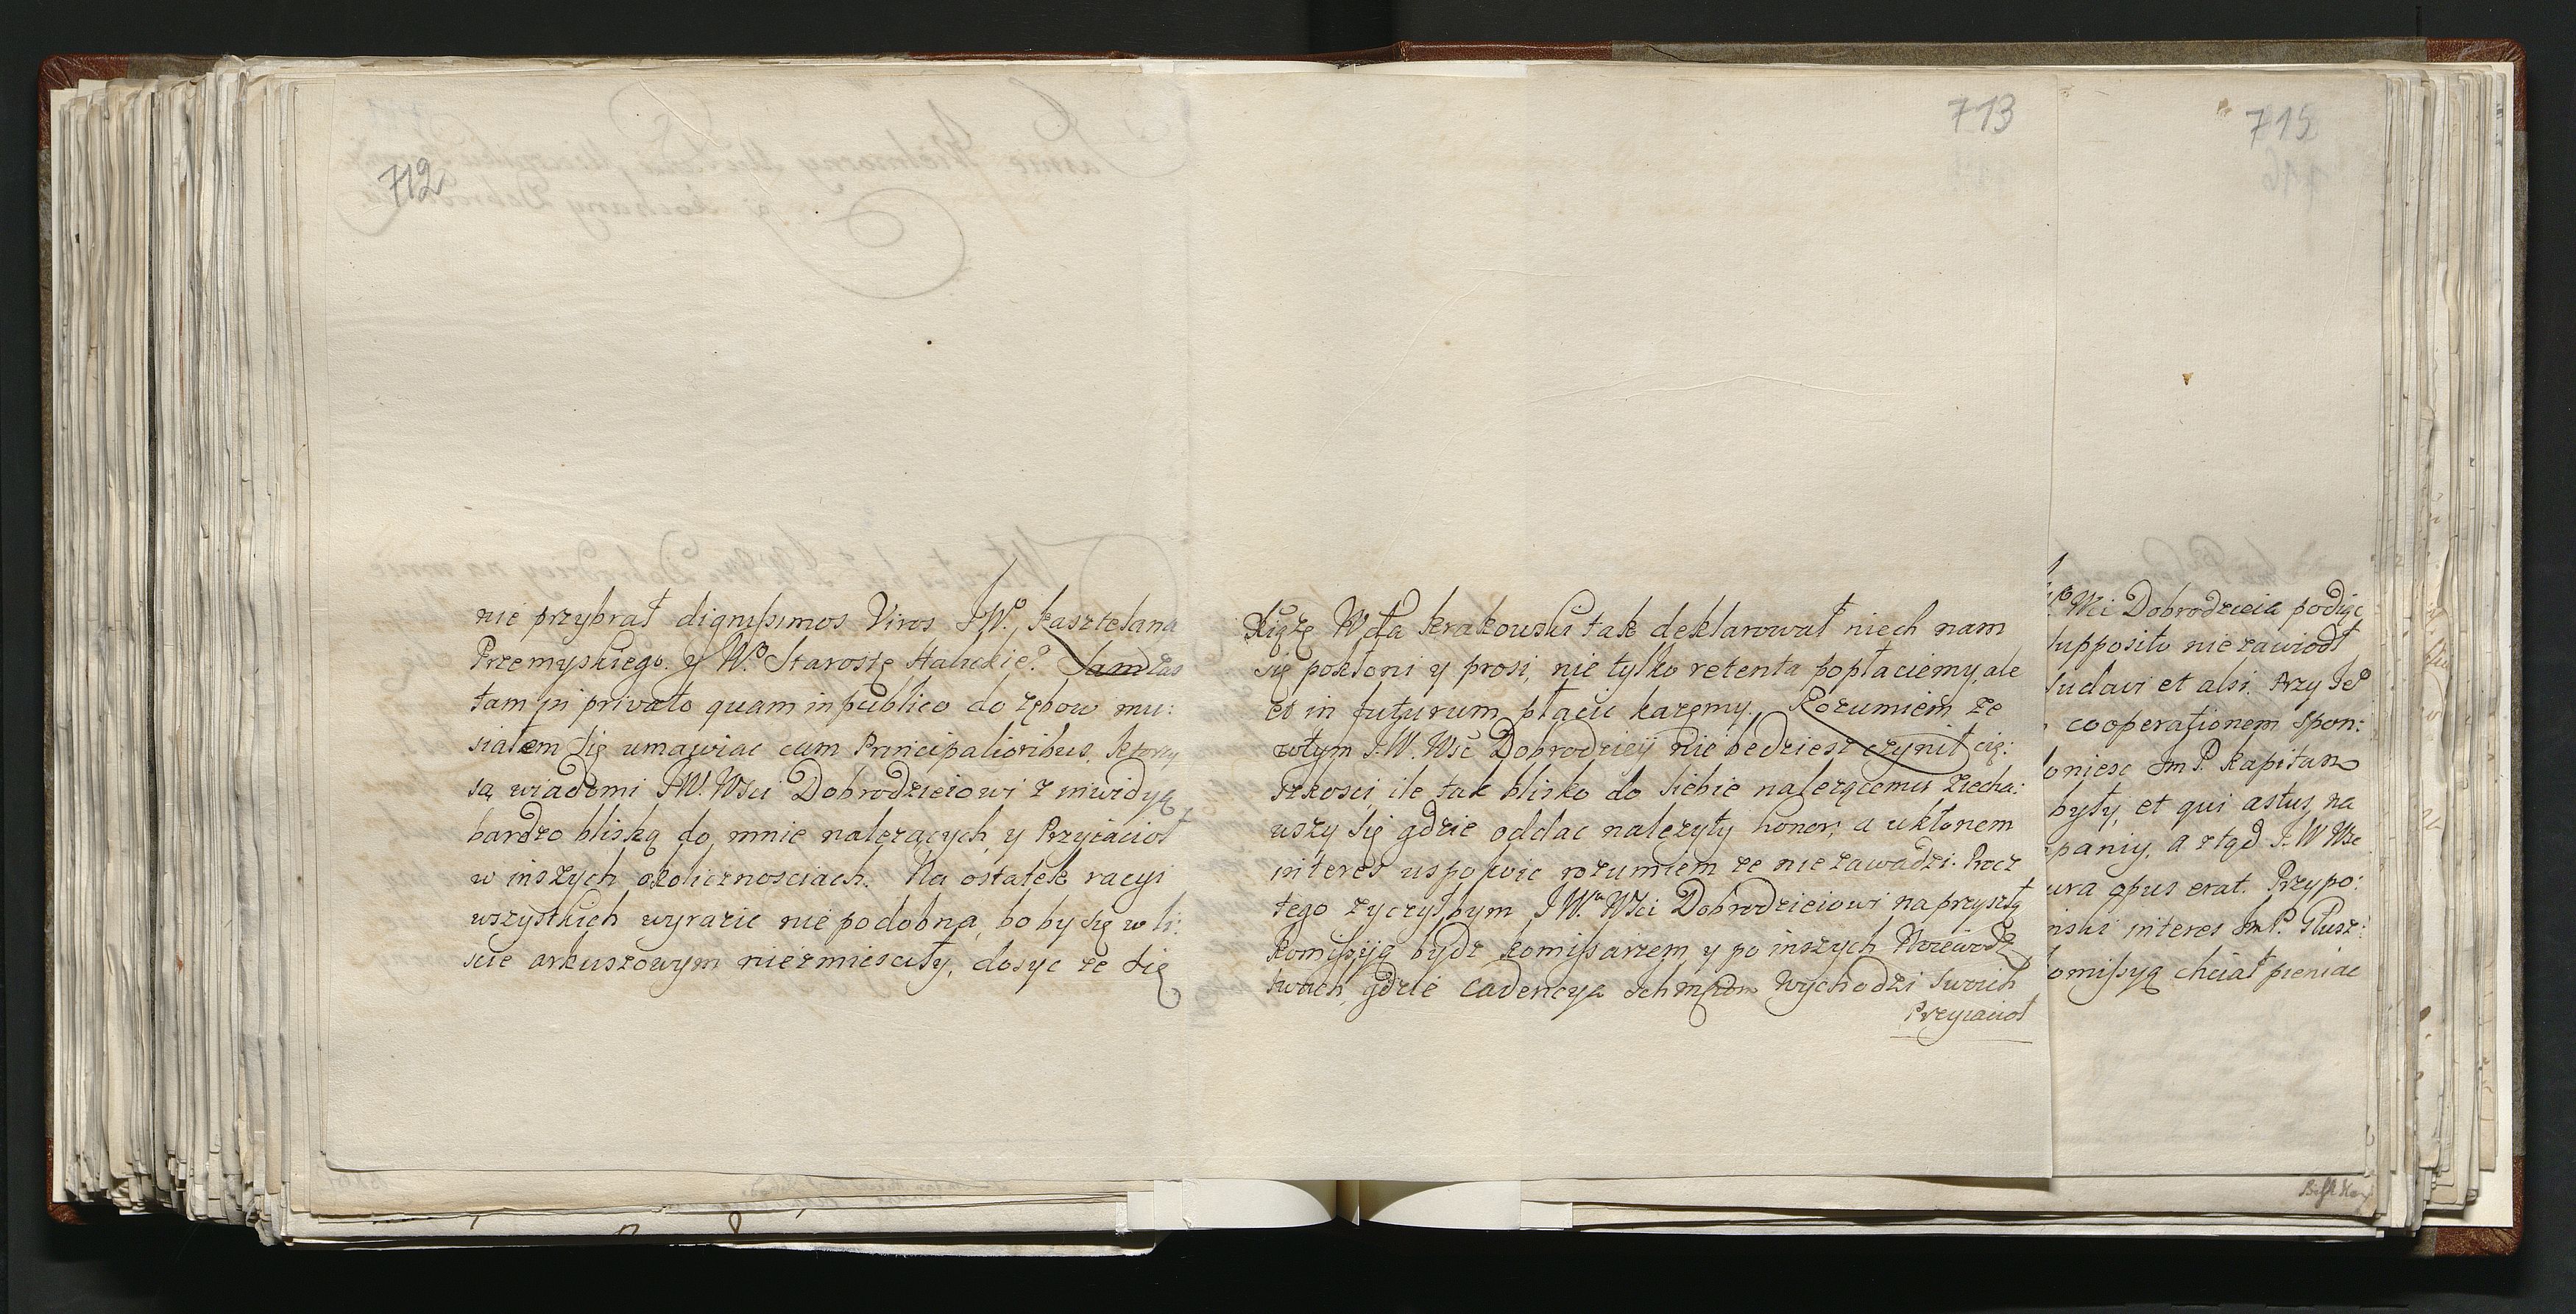 712
nie przybrał dignissimos Viros J W.º Kasztelana
Przemyskiego. y W.º Starostę Halickie? Sam zas
tam in privato quam in publico do zębow mu:
siałem się umawiac cum Principalioribus, ktorzy
są wiadomi J W. WSci Dobrodzieiowi z inwidyą
bardzo bliską do mnie nalezących, y Przyiacioł
w inszych okolicznosciach. Na ostatek racyi
wszystkich wyrazic niepodobna, bo by się w li:
scie arkuszowym niezmiesciły, dosyc ze się
713
Xiążę Wda Krakowski tak deklarował niech nam
się pokłoni y prosi, nie tylko retenta popłaciemy, ale
et in futurum płacic kazemy. Rozumiem ze
wtym J. W. WSc Dobrodzieij nie będziesz czynił cię:
szkosci, ile tak blisko do siebie nalezącemu ziecha:
wszy się gdzie oddac nalezyty honor, a ukłonem
interes uspokoic rozumiem ze nie zawadzi. Procz
tego zyczyłbym J W. WSci Dobrodzieiowi na przyszłą
Komissyią bydz Komissarzem, y po inszych Woiewodz
twach, gdzie cadencya wychodzi swoich
Przyiacioł
715
WSci Dobrodzieia podiąc
supposito niezawiodł
sudavi et alsi. Przy Jeº
cooperationem spon:
doniesc Im P. Kapitan
były, et qui astus, na
panij, a ztąd J. W WSc
ura opus erat. Przypo:
nski interes Im P. Głusz:
omissyą chciał pieniac